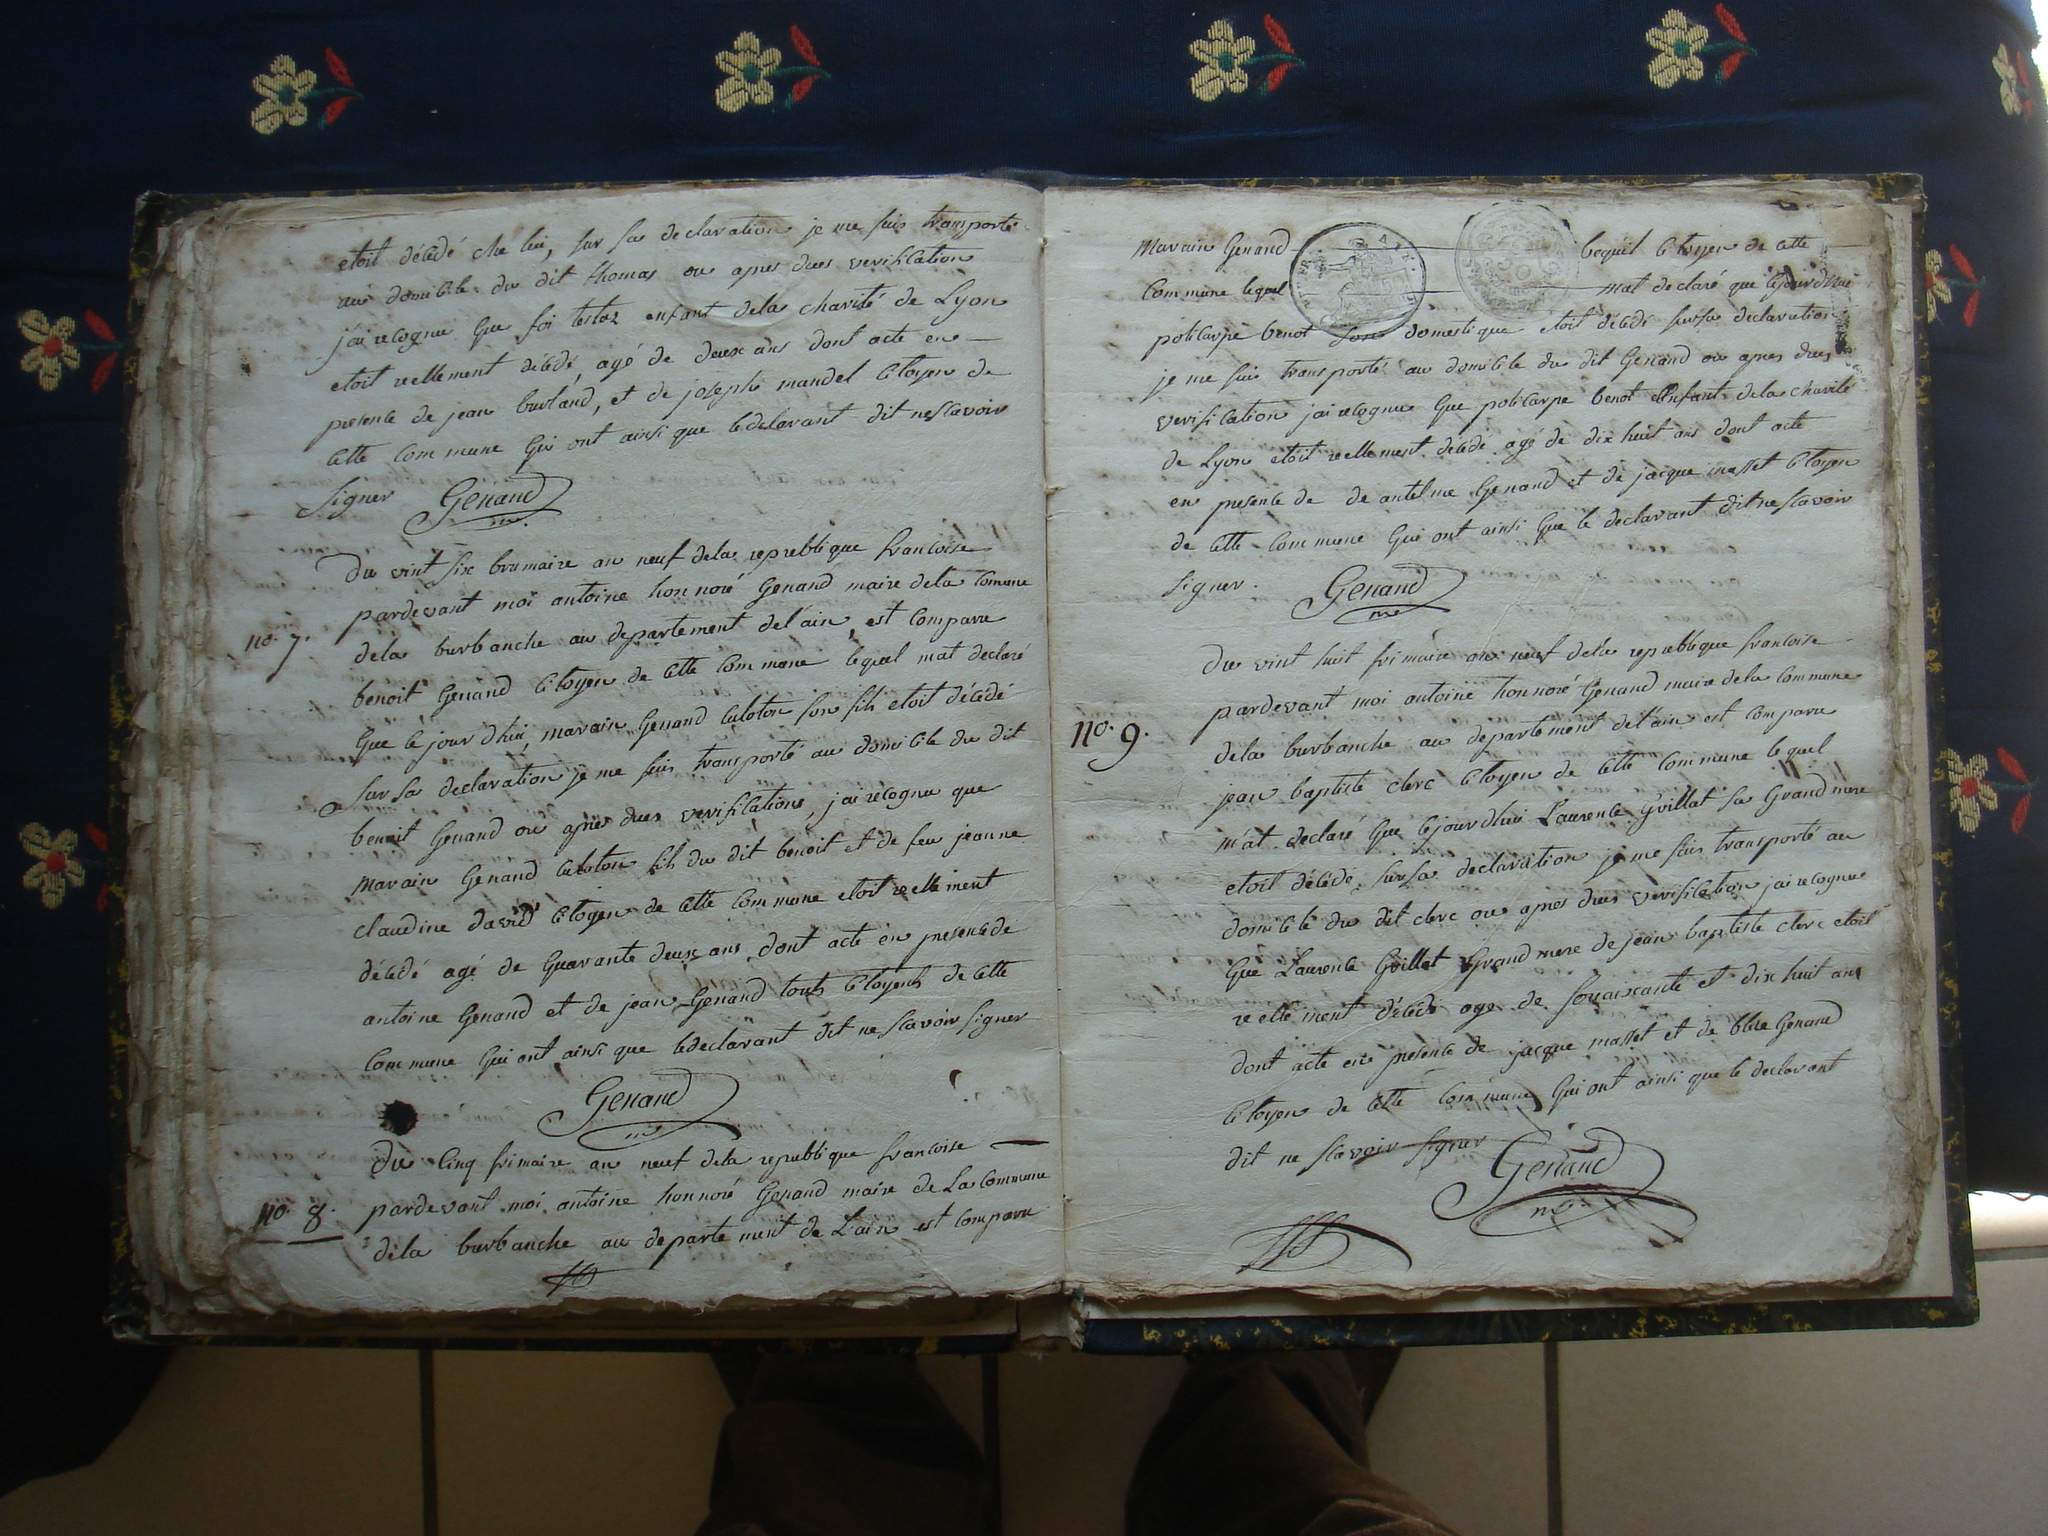 etoit décédé che lui, sur sa declaration je me suis transporté
au domicile du dit thomas ou apres dues verification
j'ai recognu que foi testaz enfant dela charité de Lyon
etoit reellement décédé, agé de deux ans dont acte en
presence de jean burland, et de joseph mandel citoyen de
cette commune qui ont ainsi que le declarant dit ne scavoir
signer Genand
m.
Du vint six brumaire an neuf dela republique francoise
no. 7.
pardevant moi antoine honnoré Genand maire dela comune
dela burbanche au departement de l'ain, est comparu
benoit Genand citoyen de cette commune lequel mat declaré
que cejourdhui, marain Genand culoton son fils etoit décédé
sur sa declaration je me suis transporté au domicile du dit
benoit Genand ou apres dues verifications, j'ai recognu que
marain Genand culoton fils du dit benoit et de feu jeanne
claudine david citoyen de cette commune etoit reellement
décédé agé de quarante deux ans dont acte en presence de
antoine Genand et de jean Genand touts citoyens de cette
commune qui ont ainsi que le declarant dit ne scavoir signer
Genand
m.
Du cinq frimaire an neuf dela republique francoise
no. 8.
pardevant moi antoine honnoré Genand maire de La commune
dela burbanche au departement de L'ain est comparu
marain Genand lequel citoyen de cette
commune lequel mat declaré que cejourdhui
policarpe benot son domestique etoit décédé sur sa declaration
je me suis transporté au domicile du dit Genand ou apres dues
verification j'ai recognu que policarpe benot enfant dela charité
de Lyon etoit reellement décédé agé de dix huit ans dont acte
en presence de de antelme Genand et de jacque masset citoyen
de cette commune qui ont ainsi que le declarant dit ne scavoir
signer. Genand
m.
Du vint huit frimaire an neuf dela republique francoise
pardevant moi antoine honnoré Genand maire dela commune
no. 9.
dela burbanche au departement de l'ain est comparu
jean baptiste clerc citoyen de cette commune lequel
m'at declaré que cejourdhui Laurence Guillat sa Grand mere
etoit décédé, sur sa declaration je me suis transporté au
domicile du dit clerc ou apres dues verification j'ai recognu
que Laurence Guillat Grand mere de jean baptiste clerc etoit
reellement décédé age de souaixante et dix huit ans
dont acte en presence de jacque masset et de Genand
citoyen de cette commune qui ont ainsi que le declarant
dit ne scavoir signer Genand
m.